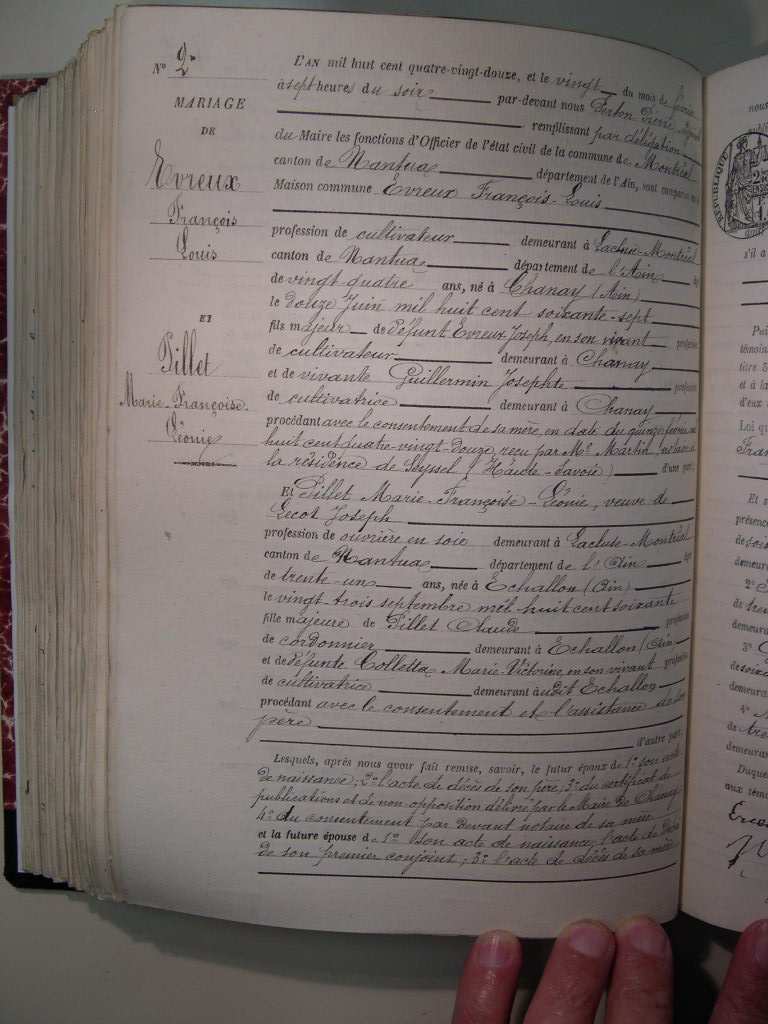 N° 2
MARIAGE
DE
Evreux
François
Louis
ET
Pillet
Marie-Françoise
Léonie
L'AN mil huit cent quatre-vingt-douze, et le vingt du mois de février
à sept heures du soir par-devant nous Pierre
remplissant par délégation
du Maire les fonctions d'Officier de l'état civil de la commune de Montréal
canton de Nantua département de l'Ain, sont comparus en la
Maison commune Evreux François-Louis
profession de cultivateur demeurant à Lacluse-Montréal
canton de Nantua département de l'Ain âgé
de vingt quatre ans, né à Chanay (Ain)
le douze Juin mil huit cent soixante-sept
fils majeur de défunt Evreux Joseph, en son vivant profession
de cultivateur demeurant à Chanay
et de vivante Guillermin Josephte profession
de cultivatrice demeurant à Chanay
procédant avec le consentement de sa mère, en date du quinze février mil
huit cent quatre-vingt-douze, reçu par Me Martin, notaire à
la résidence de Seyssel (Haute-Savoie) d'une part
Et Pillet Marie-Françoise-Léonie, veuve de
Lecot Joseph
profession de ouvrière en soie demeurant à Lacluse-Montréal
canton de Nantua département de l'Ain âgée
de trente-un ans, née à Echallon (Ain)
le vingt trois septembre mil huit cent soixante
fille majeure de Pillet Claude profession
de cordonnier demeurant à Echallon (Ain)
et de défunte Colletta Marie-Victorine, en son vivant profession
de cultivatrice demeurant audit Echallon
procédant avec le consentement et l'assistance de son
père
d'autre part.
Lesquels, après nous avoir fait remise, savoir, le futur époux de 1° son acte
de naissance; 2° l'acte de décès de son père; 3° du certificat de
publications et de non-opposition délivré par le Maire de Chanay
4° du consentement par devant notaire de sa mère
et la future épouse de 1° son acte de naissance, l'acte de décès
de son premier conjoint; 3° l'acte de décès de sa mère
RÉPUBLIQUE
25
nous
s'il a
témoin
tière
et à la
d'eux
Loi qu
Fran
Et
présence
de
demeura
2°
de
demeura
3°
de
demeura
4°
de
demeurant
Duque
aux témo